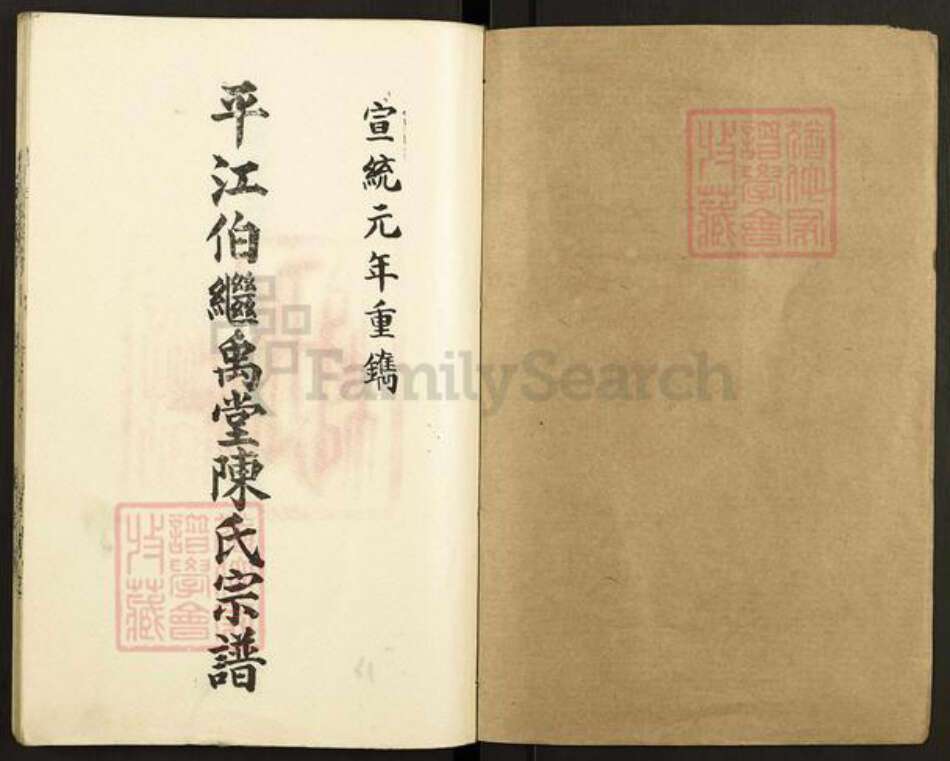 宣統元年重鐫
平江伯繼禹堂陳氏宗譜
譜學會
收藏
譜學會
收藏
FamilySearch